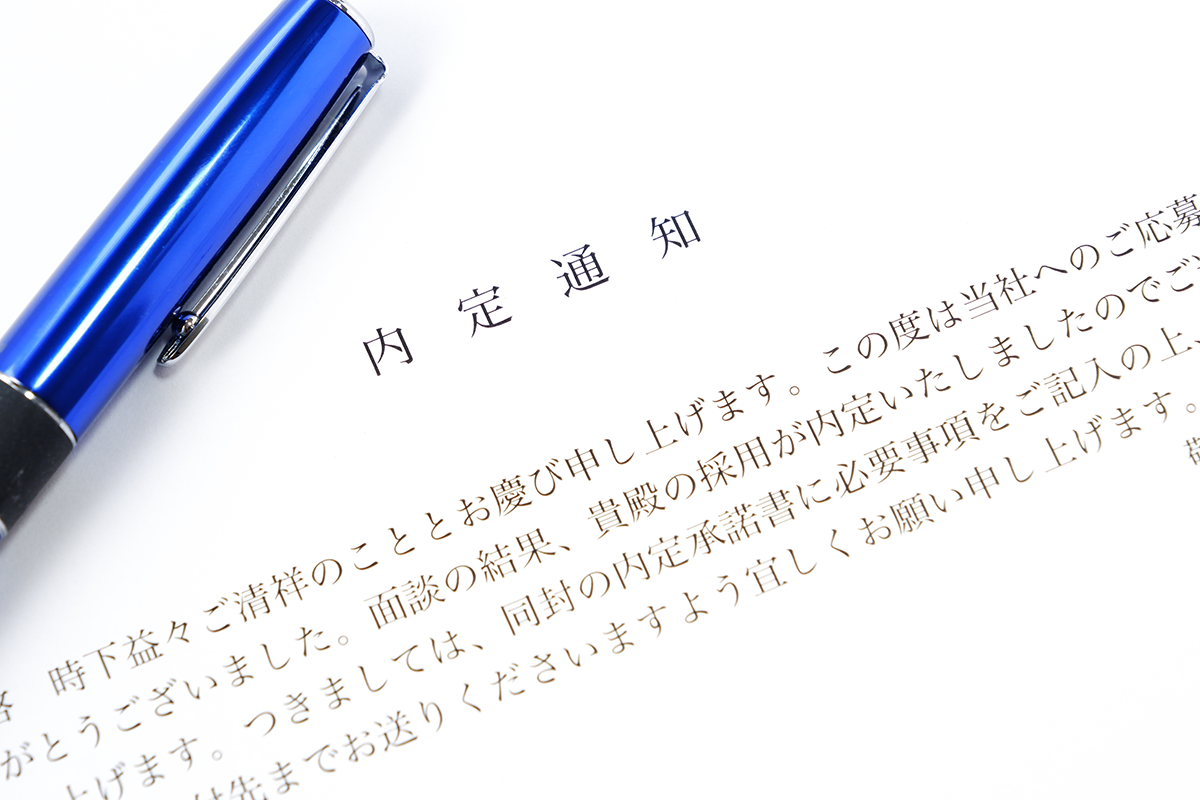 内定通知
時下益々ご清祥のこととお慶び申し上げます。この度は当社へのご応募
がとうございました。面談の結果、貴殿の採用が内定いたしましたのでご
上げます。つきましては、同封の内定承諾書に必要事項をご記入の上、
付先までお送りくださいますよう宜しくお願い申し上げます。